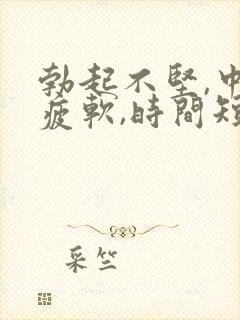 勃起不堅,中
疲軟,時間短
采竺